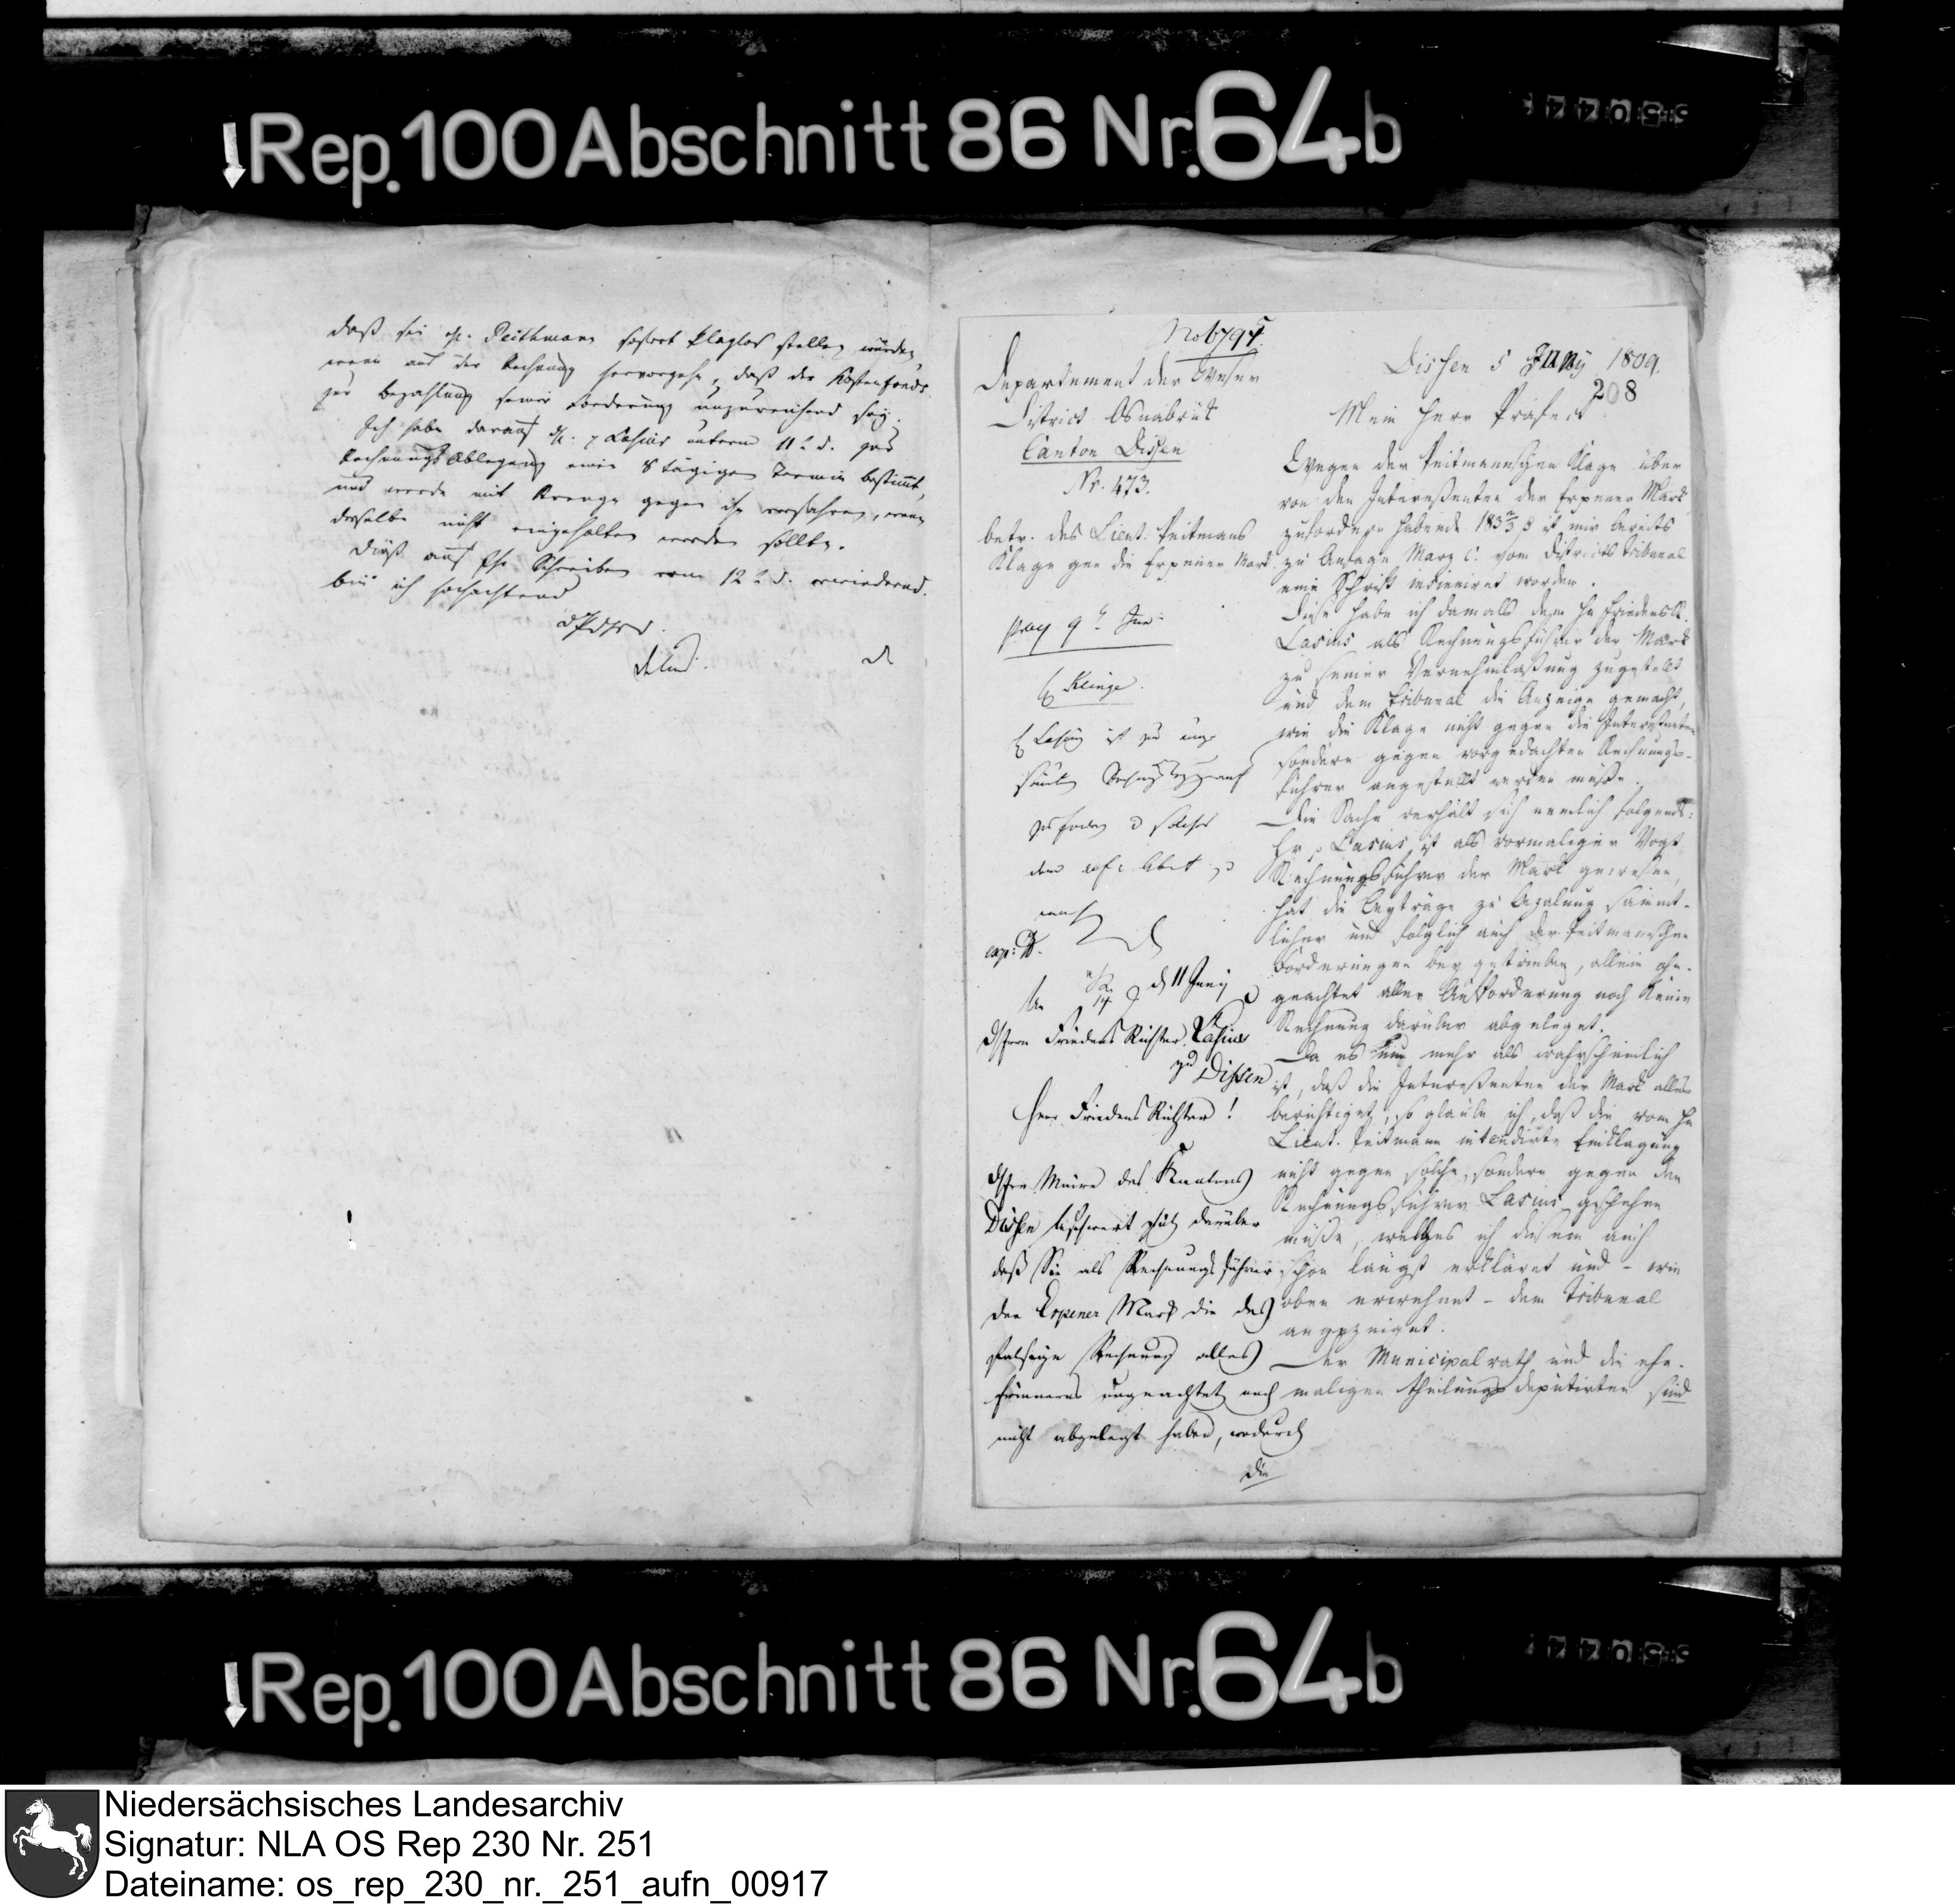 Rep. 100 Abschnitt 86 Nr. 64b
daß sie H. Peithmann sofort klaglos stellen würden,
wenn aus der Rechnung hervorgehe, daß der Kostenfonds
zur Bezahlung seiner Forderung unzureichend sey.
Ich habe darauf H. p Lasius unterm 11t d. zur
Rechnungs Ablegung einen 8 tägigen Termin bestimt,
und werde mit Strenge gegen ihn verfahren, wenn
derselbe nicht eingehalten werden sollte.
Dieß auf Ihr Schreiben vom 12t d. erwiedernd.
bin ich hochachtend
No 6794.
Departement der Weser
District Osnabrük
Canton Dissen
Nr. 473.
betr. des Lieut. Peitmans
Klage gen die Erpener Mark.
9t Jun
Klinge.
Lasius ist zu
zu solches
exp:
An d 11 Juny
14
Herrn Friedens Richter Lasius
zu Dissen
Herr Friedens Richter!
Herr Maire des Kantons
Dissen beschwert sich darüber
daß Sie als Rechnungsführer
der Erpener Mark die des
Rechnung alles
Erinnerns ungeachtet noch
nicht abgelegt haben, wodurch
die
Dissen 5 Juny 1809.
208
Mein Herr Präfect
Wegen der Peitmannschen Klage über
von den Interessenten der Erpener Mark
zufordern habende 183 2/3 ist mir bereits
zu Anfange Marz c. vom Districts Tribunal
eine Schrift insinuiret worden.
Diese habe ich damals dem Hn FriedensR.
Lasius als Rechnungsführer der Mark
zu seiner Vernehmlaßung zugestellt
und dem Tribunal die Anzeige gemacht,
wie die Klage nicht gegen die Interessenten
sondern gegen vorgedachten Rechnungs-
führer angestellt werden müße.
Die Sache verhält sich nemlich folgend:
Hr p Lasius ist als vormaliger Vogt
Rechnungsführer der Mark gewesen,
hat die Beyträge zu Bezalung sämmt-
licher und folglich auch der Peitmanschen
Forderungen bey getrieben, allein ohn-
geachtet aller Aufforderung noch keine
Rechnung darüber abgeleget.
Da es nun mehr als wahrscheinlich
ist, daß die Interessenten der Mark alles
berichtiget, so glaube ich, daß die vom Hn
Lieut. Peitmann intendirte Einklagung
nicht gegen solche, sondern gegen den
Rechnungsführer Lasius geschehen
müße, welches ich diesem auch
schon längst erkläret und - wie
oben erwehnet - dem Tribunal
angezeiget.
Der Municipalrath und die ehe-
maligen Theilungsdeputirten sind
Rep. 100 Abschnitt 86 Nr. 64b
Niedersächsisches Landesarchiv
Signatur: NLA OS Rep 230 Nr. 251
Dateiname: os_rep_230_nr._251_aufn_00917